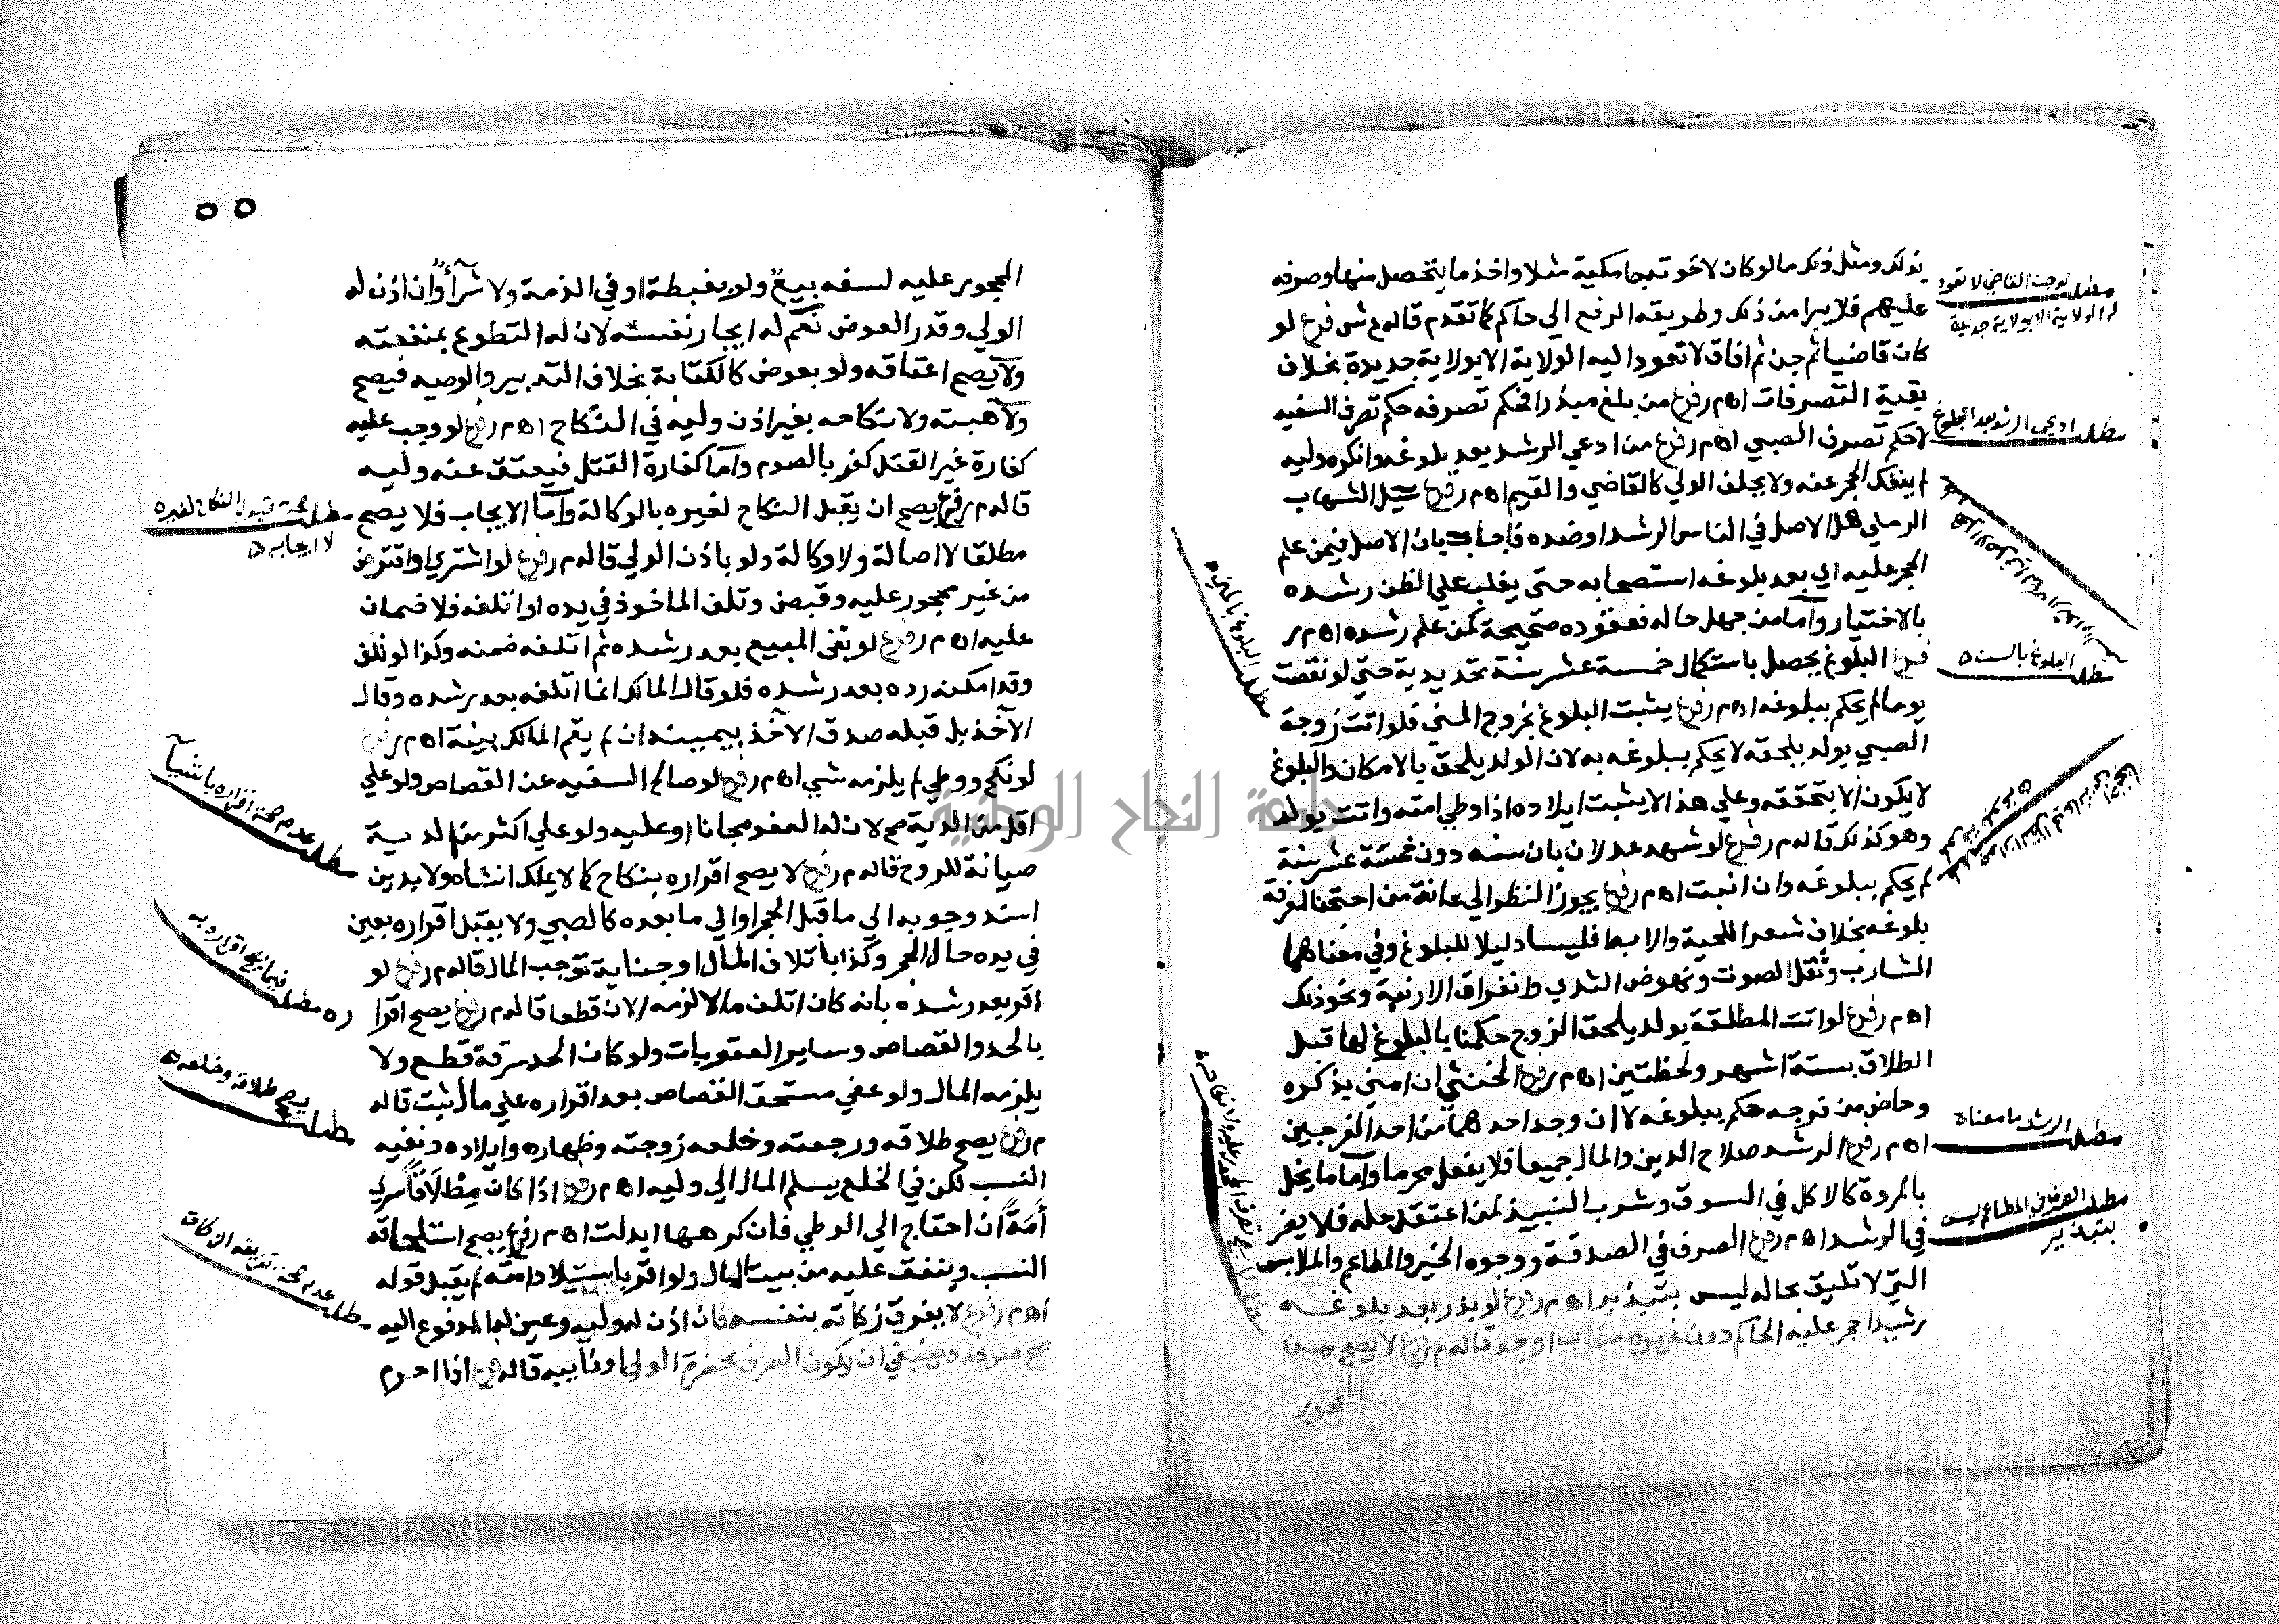 بذلك ومثل ذلك ما لو كان لاخوته جامكية مثلا واخذ ما يتحصل منها وصرفه
عليهم فلا يبرا من ذلك وطريقه الرفع الي حاكم كما تقدم قاله ع ش فرع لو
كان قاضيا ثم جن ثم افاق لا تعود اليه الولاية الا بولاية جديدة بخلاف
بقية التصرفات اه م ر فرع من بلغ مبذرا فحكم تصرفه حكم تصرف السفيه
لا حكم تصرف الصبي اه م ر فرع من ادعي الرشد بعد بلوغه وانكره وليه
لم ينفك الحجر عنه ولا يحلف الولي كالقاضي والقيم اه م ر فرع سيل الشهاب
الرملي هل الاصل في الناس الرشد او ضده فاجاب بان الاصل فيمن علم
الحجر عليه اي بعد بلوغه استصحابه حتي يغلب علي الظن رشده
بالاختبار واما من جهل حاله فعقوده صحيحة كمن علم رشده اه م ر
فرع البلوغ يحصل باستكمال خمسة عشر سنة تحديدية حتي لو نقصت
يوما لم يحكم ببلوغه اه م ر فرع يثبت البلوغ بخروج المني فلو اتت زوجة
الصبي بولد يلحقه لا يحكم ببلوغه به لان الولد يلحق بالامكان والبلوغ
لا يكون الا بتحققه وعلي هذا لا يثبت ايلاده اذا وطي امته واتت بولد
وهو كذلك قاله م ر فرع لو شهد عدلان بان سنه دون خمسة عشر سنة
لم يحكم ببلوغه وان انبت اه م ر فرع يجوز النظر الي عانة من احتجنا لمعرفة
بلوغه بخلاف شعر اللحية والابط فليسا دليلا للبلوغ وفي معناهما
الشارب وثقل الصوت ونهوض الثدي وانفراق الارنبة ونحو ذلك
اه م ر فرع لو اتت المطلقة بولد يلحق الزوج حكمنا بالبلوغ لها قبل
الطلاق بستة اشهر ولحظتين اه م ر فرع الخنثي ان امني بذكره
وحاض من فرجه حكم ببلوغه لا ان وجد احدهما من احد الفرجين
اه م ر فرع الرشد صلاح الدين والمال جميعا فلا يفعل محرما واما ما يخل
بالمروة كالاكل في السوق وشرب النبيذ لمن اعتقد حله فلا يضر
في الرشد اه م ر فرع الصرف في الصدقة ووجوه الخير والمطاعم والملابس
التي لا تليق بحاله ليس بتبذير اه م ر فرع لو بذر بعد بلوغه
رشيدا حجر عليه الحاكم دون غيره من اب او جد قاله م ر فرع لا يصح من
المحجور
مطلب لو جن القاضي لا تعود
له الولاية الا بولاية جديدة
مطلب ادعي الرشد بعد البلوغ
مطلب البلوغ بالسن
مطلب الرشد ما معناه
مطلب الصرف في المطاعم ليس
بتبذير
٥٥
المحجور عليه لسفه بيع ولو بغبطة او في الذمة ولا شراء وان اذن له
الولي وقدر العوض نعم له ايجار نفسه لان له التطوع بمنفعته
ولا يصح اعتاقه ولو بعوض كالكتابة بخلاف التدبير والوصيه فيصح
ولا هبته ولا نكاحه بغير اذن وليه في النكاح اه م ر فرع لو وجب عليه
كفارة غير القتل كفر بالصوم واما كفارة القتل فيعتق عنه وليه
قاله م ر فرع يصح ان يقبل النكاح لغيره بالوكالة واما الايجاب فلا يصح
مطلقا لا اصالة ولا وكالة ولو باذن الولي قاله م ر فرع لو اشتري او اقترض
من غير محجور عليه وقبض وتلف الماخوذ في يده او اتلفه فلا ضمان
عليه اه م ر فرع لو بقي المبيع بعد رشده ثم اتلفه ضمنه وكذا لو تلف
وقد امكنه رده بعد رشده فلو قال المالك انما اتلفه بعد رشده وقال
الآخذ بل قبله صدق الآخذ بيمينه ان لم يقم المالك بينة اه م ر فرع
لو نكح ووطي لم يلزمه شي اه م ر فرع لو صالح السفيه عن القصاص ولو علي
اقل من الدية صح لان له العفو مجانا او عليه ولو علي اكثر من الدية
صيانة للروح قاله م ر فرع لا يصح اقراره بنكاح كما لا يملك انشاه ولا بدين
اسند وجوبه الي ما قبل الحجر او الي ما بعده كالصبي ولا يقبل اقراره بعين
في يده حال الحجر وكذا باتلاف المال او جناية توجب المال قاله م ر فرع لو
اقر بعد رشده بانه كان اتلف مالا لزمه الان قطعا قاله م ر فرع يصح اقرا ره
بالحد والقصاص وساير العقوبات ولو كان الحد سرقة قطع ولا
يلزمه المال ولو عفي مستحق القصاص بعد اقراره علي مال ثبت قاله
م ر فرع يصح طلاقه ورجعته وخلعه زوجته وظهاره وايلاده ونفيه
النسب لكن في الخلع يسلم المال الي وليه اه م ر فرع اذا كان مطلاقا سري
أمة ان احتاج الي الوطي فان كرهها ابدلت اه م ر فرع يصح استلحاقه
النسب وينفق عليه من بيت المال ولو اقر باستيلاد امته لم يقبل قوله
اه م ر فرع لا يفرق زكاته بنفسه فان اذن له وليه وعين له المدفوع اليه
صح صرفه وينبغي ان يكون الصرف بحضرة الولي او نائبيه قاله فرع اذا احرم
مطلب صحة قبول النكاح لغيره
لا ايجابه
مطلب عدم صحة اقراره باشيا
مطلب فيما يصح اقراره به
مطلب يصح طلاقه وخلعه
مطلب عدم صحة تفريقه الزكاة
جامعة النجاح الوطنية